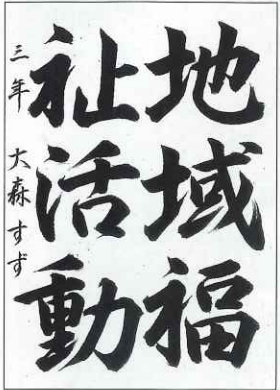 地域福
祉活動
三年 大森すず